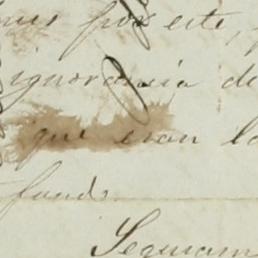 por este,
ignorancia de
que eran lo
fondo.
Seguram